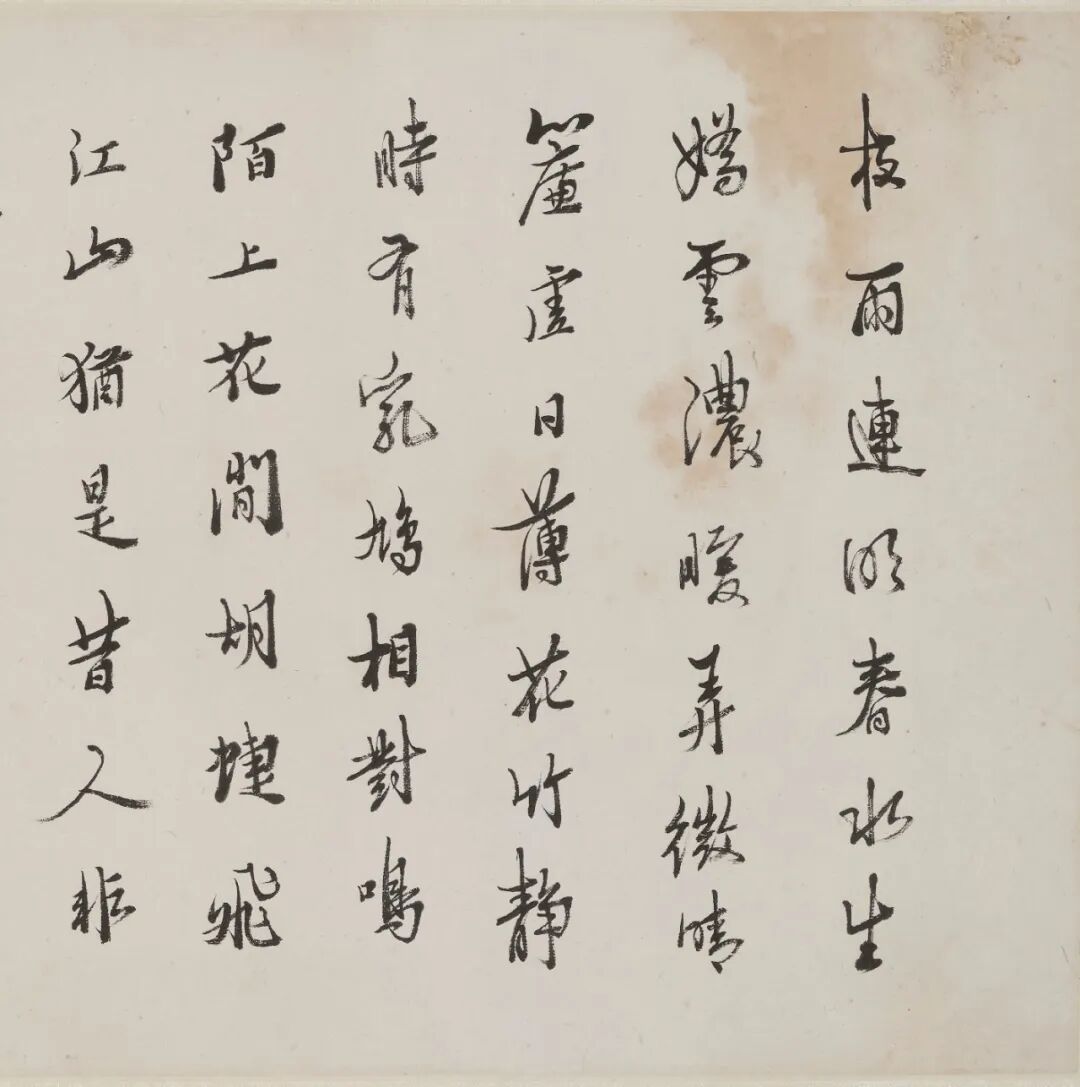 枝雨連明春水生
嬌雲濃暖弄微晴
簾虛日薄花竹靜
時有乳鳩相對鳴
陌上花開胡蜨飛
江山猶是昔人非